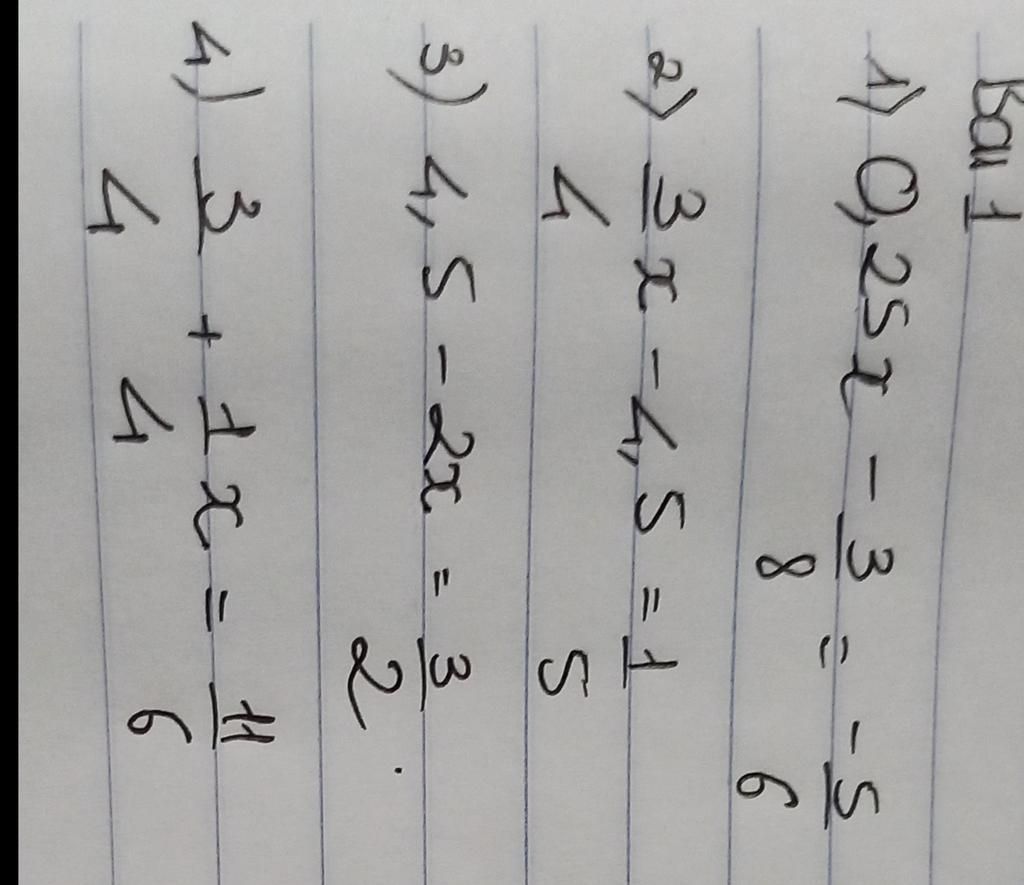 Bài 1
1) 0,25x - 3/8 = -5/6
2) 3/4 x - 4,5 = 1/5
3) 4,5 - 2x = 3/2.
4) 3/4 + 1/4 x = 11/6